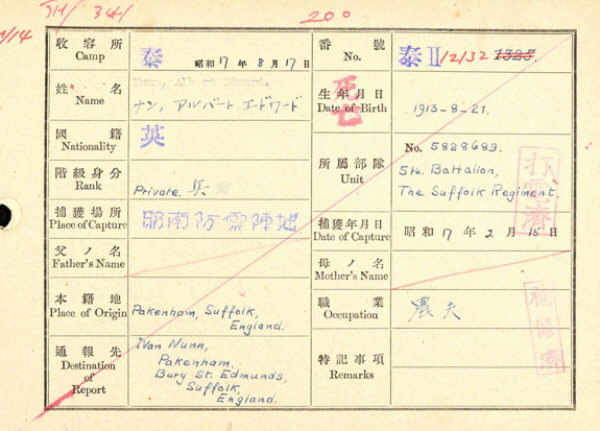 TH/ 341
200
收容所
Camp
泰
昭和17年8月17日
番號
No.
泰II 12132 1325
姓名
Name
Nunn, Albert Edward.
ナン, アルバート エドワード
生年月日
Date of Birth
1913-8-21.
國籍
Nationality
英
所屬部隊
Unit
No. 5828689.
5th. Battalion,
The Suffolk Regiment.
階級身分
Rank
Private. 兵
捕獲場所
Place of Capture
昭南防禦陣地
捕獲年月日
Date of Capture
昭和17年2月15日
父ノ名
Father's Name
母ノ名
Mother's Name
本籍地
Place of Origin
Pakenham, Suffolk,
England.
職業
Occupation
農夫
通報先
Destination
of
Report
Ivan Nunn,
Pakenham,
Bury St. Edmunds,
Suffolk,
England.
特記事項
Remarks
打電濟
補修濟